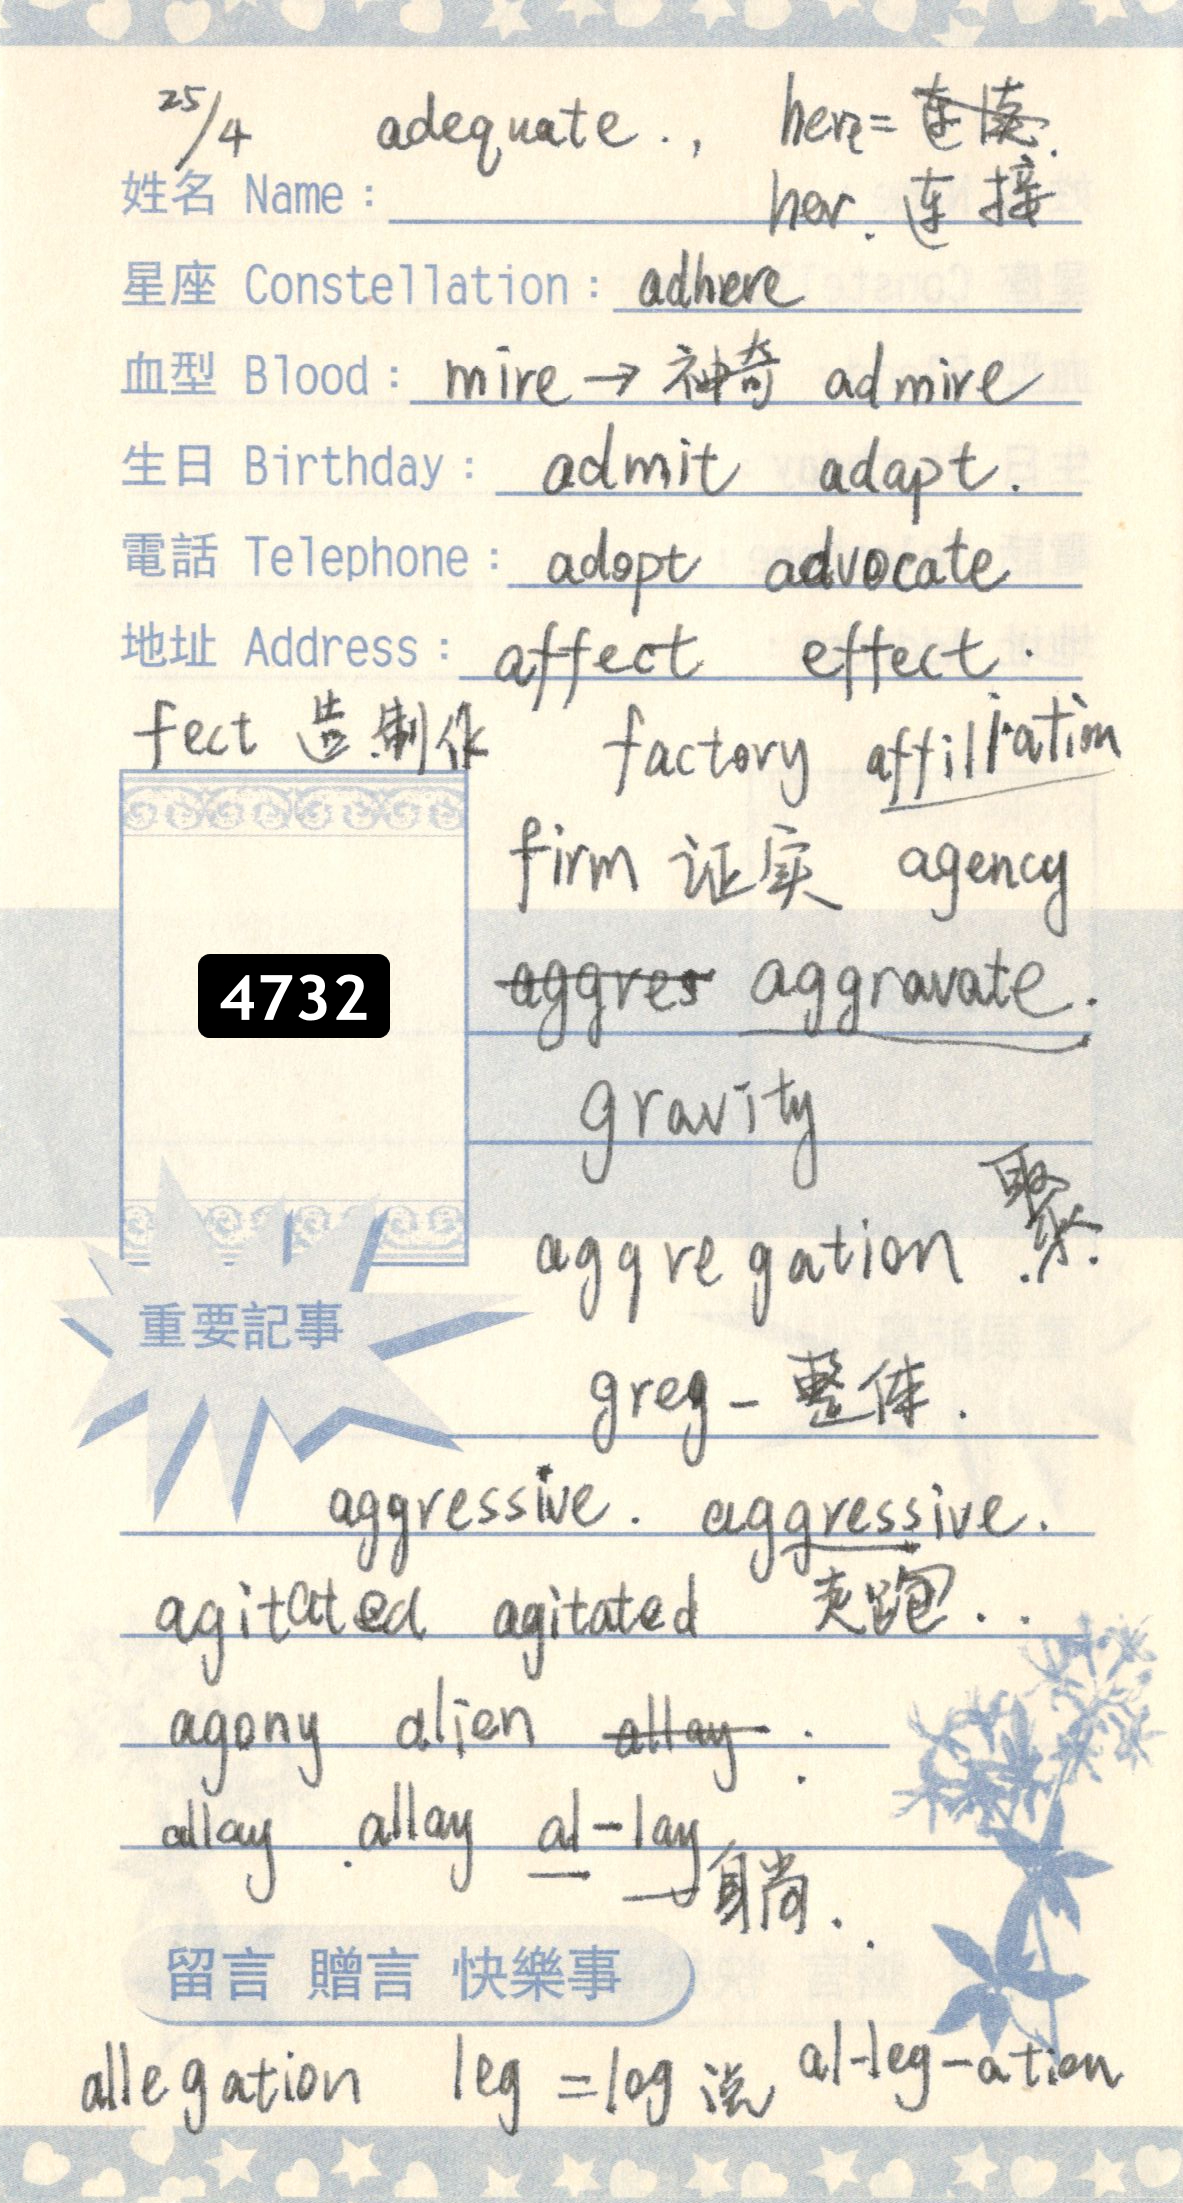 25/4 adequate . , her=
姓名 Name : her. 连接
星座 Constellation : adhere
血型 Blood : mire → 神奇 admire
生日 Birthday : admit adapt.
電話 Telephone : adopt advocate
地址 Address : affect effect.
fect 造 制作 factory affiliation
firm 证实 agency
4732 aggres aggravate.
gravity
聚
aggregation
重要記事
greg - 整体.
aggressive. aggressive.
agitated agitated 走跑..
agony alien allay :
allay . allay al-lay
留言 贈言 快樂事
allegation leg =log 说 al-leg-ation